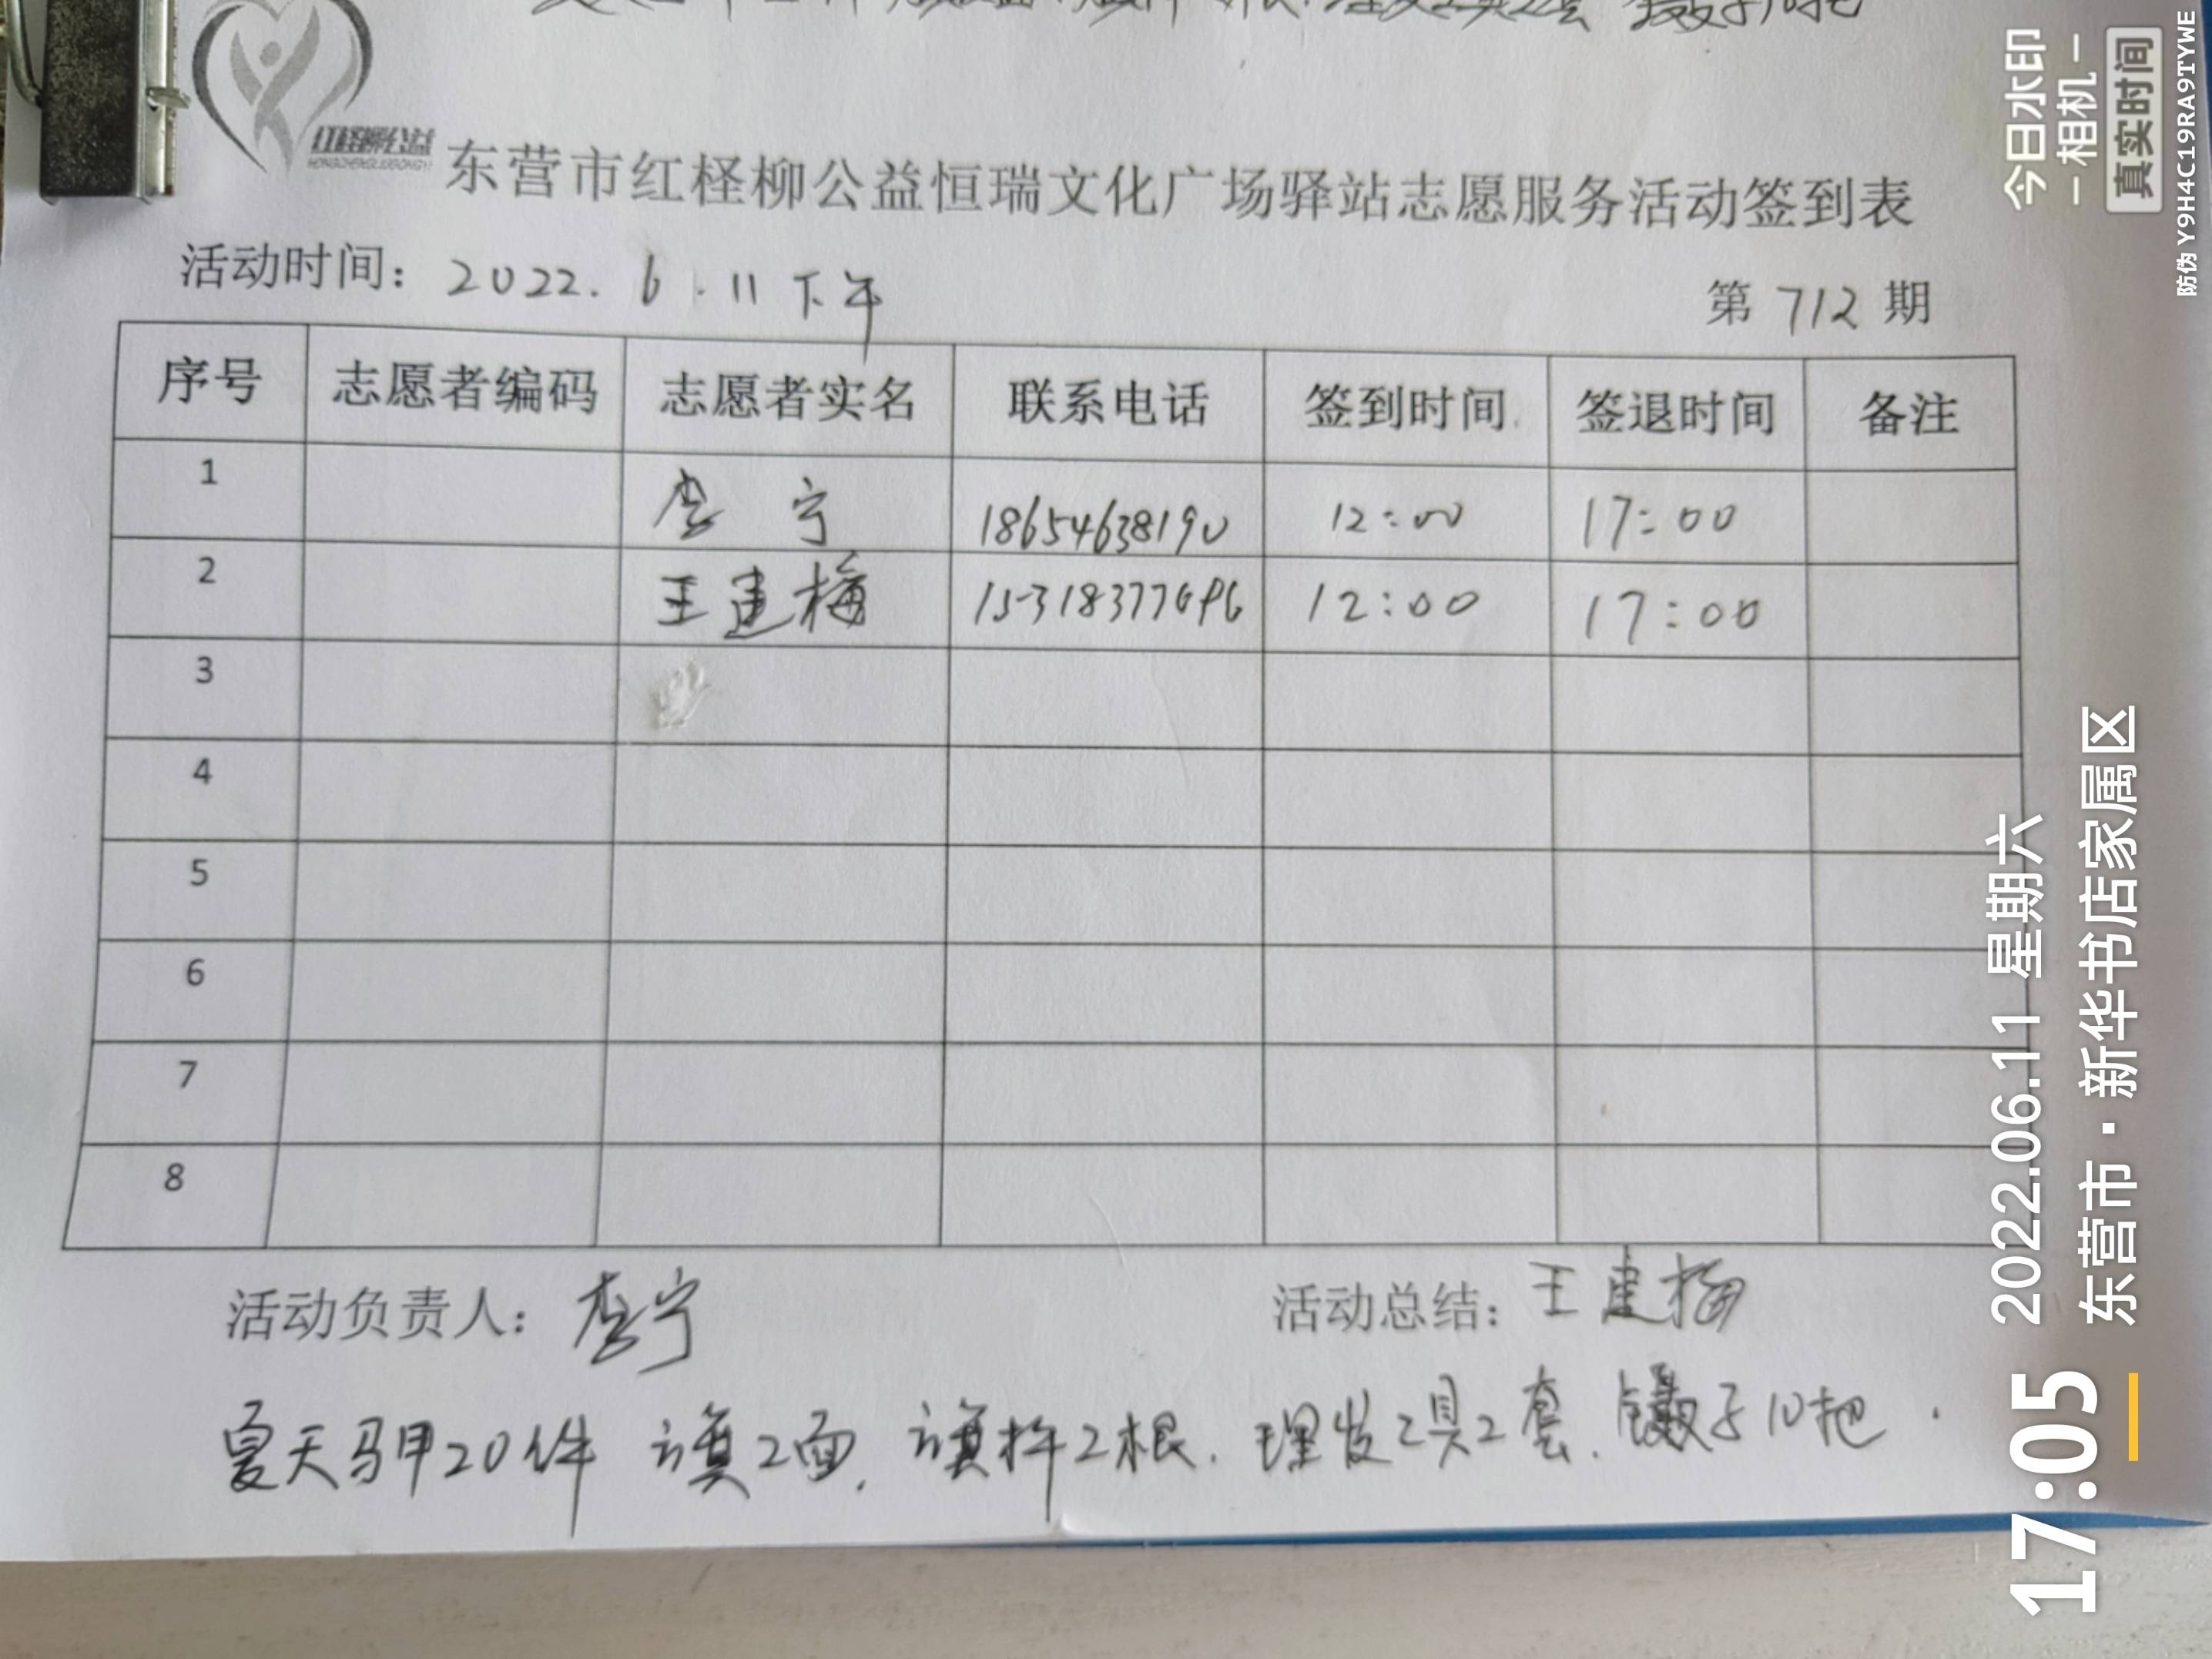 理发工具2套 镊子10把
红柽柳公益
HONGCHENGLIUGONGYI
东营市红柽柳公益恒瑞文化广场驿站志愿服务活动签到表
活动时间：2022.6.11下午
第712期
序号 志愿者编码 志愿者实名 联系电话 签到时间 签退时间 备注
1 李宁 18654638190 12:00 17:00
2 王建梅 15318377696 12:00 17:00
3
4
5
6
7
8
活动负责人：李宁 活动总结：王建梅
夏天马甲20件 旗2面，旗杆2根．理发工具2套．镊子10把．
今日水印
-相机-
真实时间
防伪 Y9H4C19RA9TYWE
17:05
2022.06.11 星期六
东营市·新华书店家属区